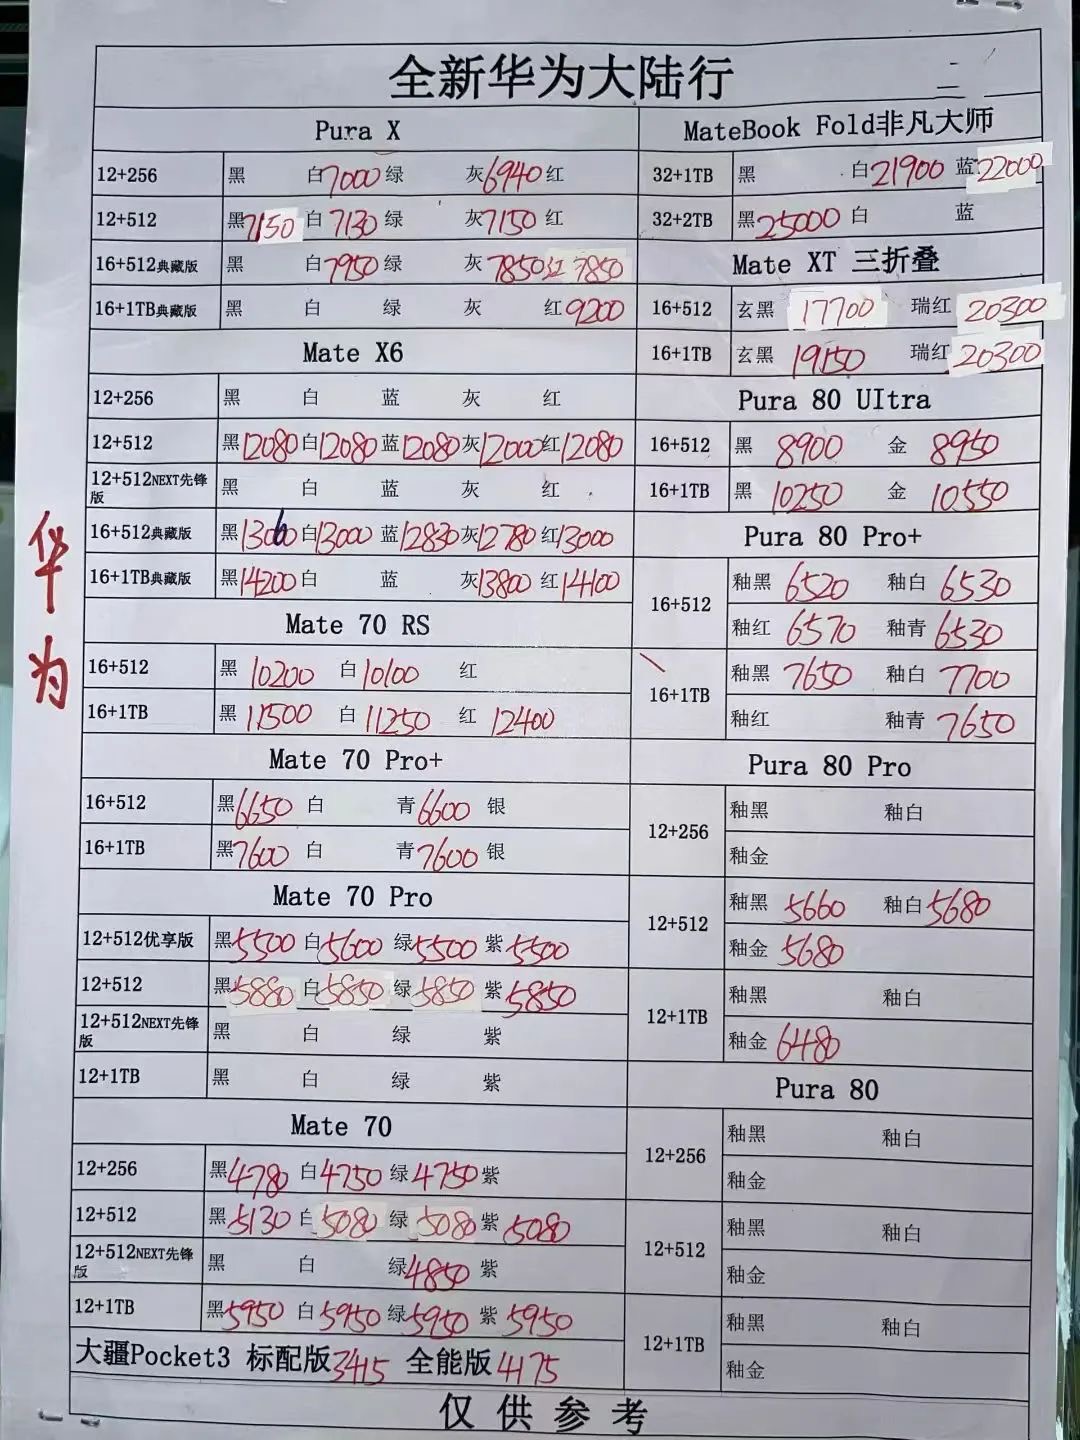 全新华为大陆行
华为
Pura X
12+256 黑 白7000 绿 灰6940 红
12+512 黑7150 白7130 绿 灰7150 红
16+512典藏版 黑 白7950 绿 灰7850 红7850
16+1TB典藏版 黑 白 绿 灰 红9200
Mate X6
12+256 黑 白 蓝 灰 红
12+512 黑12080 白12080 蓝12080 灰12000 红12080
12+512NEXT先锋版 黑 白 蓝 灰 红
16+512典藏版 黑 白13000 蓝12830 灰12780 红13000
16+1TB典藏版 黑14200 白 蓝 灰13800 红14100
Mate 70 RS
16+512 黑 10200 白10100 红
16+1TB 黑 11500 白 11250 红 12400
Mate 70 Pro+
16+512 黑6650 白 青6600 银
16+1TB 黑7600 白 青7600 银
Mate 70 Pro
12+512优享版 黑5500 白5600 绿5500 紫5500
12+512 黑5880 白5850 绿5850 紫5850
12+512NEXT先锋版 黑 白 绿 紫
12+1TB 黑 白 绿 紫
Mate 70
12+256 黑4780 白4750 绿4750 紫
12+512 黑5130 白5080 绿5080 紫5080
12+512NEXT先锋版 黑 白 绿4850 紫
12+1TB 黑5950 白5950 绿5950 紫5950
大疆Pocket3 标配版3415 全能版4175
MateBook Fold非凡大师
32+1TB 黑 白21900 蓝22000
32+2TB 黑25000 白 蓝
Mate XT 三折叠
16+512 玄黑 17700 瑞红 20300
16+1TB 玄黑 19150 瑞红 20300
Pura 80 UItra
16+512 黑 8900 金 8950
16+1TB 黑 10250 金 10550
Pura 80 Pro+
16+512 釉黑 6520 釉白 6530
釉红 6570 釉青 6530
16+1TB 釉黑 7650 釉白 7700
釉红 釉青 7650
Pura 80 Pro
12+256 釉黑 釉白
釉金
12+512 釉黑 5660 釉白5680
釉金 5680
12+1TB 釉黑 釉白
釉金 6480
Pura 80
12+256 釉黑 釉白
釉金
12+512 釉黑 釉白
釉金
12+1TB 釉黑 釉白
釉金
仅供参考